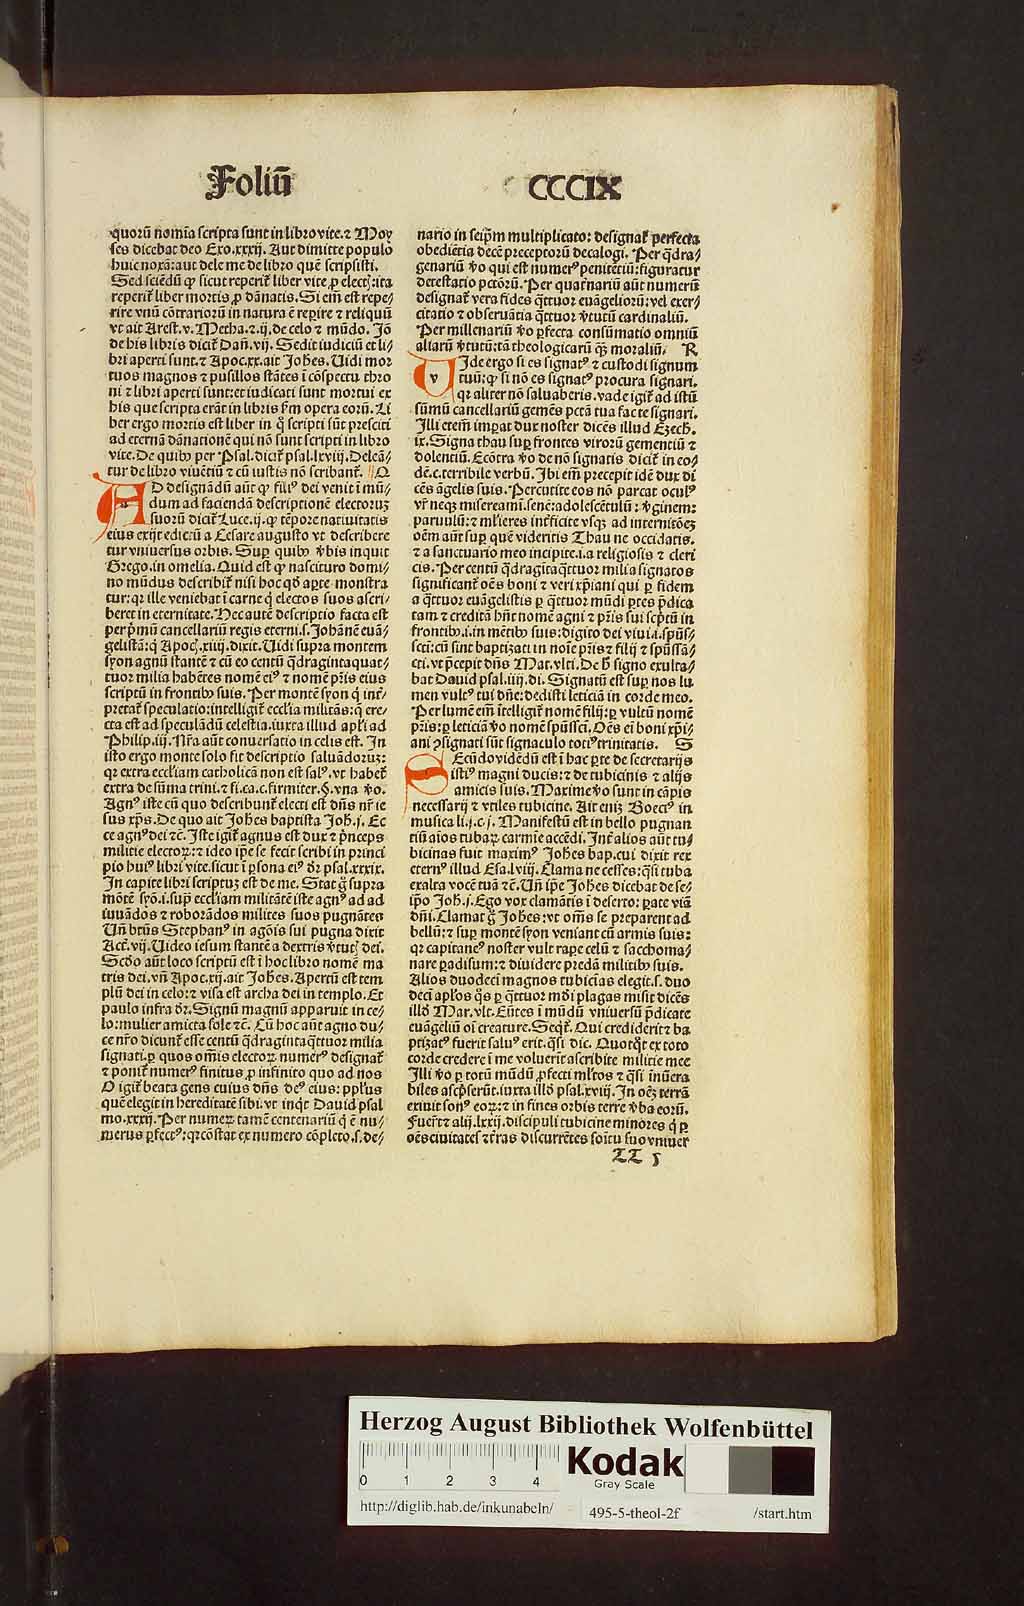 Foliū CCCIX
quorū nomīa scripta sunt in libro vite.⁊ Moy
ses dicebat deo Exo.xxxij. Aut dimitte populo
huic noxā:aut dele me de libro quē scripsisti.
Sed sciēdū ꝙ sicut reperit᷑ liber vite ꝓ elect�:ita
reperit᷑ liber mortis ꝓ dānatis. Si em̄ est repe/
rire vnū cōtrariorū in natura ē reꝑire ⁊ reliquū
vt ait Arest.v. Metha.⁊.ij.de celo ⁊ mūdo. Jō
de his libris dicit᷑ Dañ.vij. Sedit iudiciū et li/
bri aperti sunt.⁊ Apoc.xx.ait Joh̄es. Uidi mor
tuos magnos ⁊ pusillos stātes ī cōspectu thro
ni ⁊ libri aperti sunt:et iudicati sunt mortui ex
his que scripta erāt in libris ẜm opera eorū. Li
ber ergo mortis est liber in q̊ scripti sūt presciti
ad eternā dānationē qui nō sunt scripti in libro
vite. De quibꝰ per Psal.dicit᷑ psal.lxviij. Deleā/
tur de libro viuētiū ⁊ cū iustis nō scribant᷑. Q
AD designādū aūt ꝙ filiꝰ dei venit ī mū/
dum ad faciendā descriptionē electorum
suorū dicit᷑ Luce.ij.ꝙ tēpore natiuitatis
eius exijt edictū a Cesare augusto vt describere
tur vniuersus orbis. Suꝑ quibꝰ v̄bis inquit
Grego.in omelia. Quid est ꝙ nascituro domi/
no mūdus describit᷑ nisi hoc qd̄ aꝑte monstra
tur:qꝛ ille veniebat ī carne q̇ electos suos ascri/
beret in eternitate. Hec autē descriptio facta est
per p̄mū cancellariū regis eterni.s. Johānē euā/
gelistā:q̇ Apoc.xiiij.dixit. Uidi supra montem
syon agnū stantē ⁊ cū eo centū q̄dragintaquat/
tuor milia habētes nomē eiꝰ ⁊ nomē pr̄is eius
scriptū in frontibꝰ suis. Per montē syon q̇ int̄/
pretat᷑ speculatio:intelligit᷑ ecclīa militās:q̇ ere/
cta est ad speculādū celestia.iuxta illud apl̄i ad
Philip.iij. Nr̄a aūt conuersatio in celis est. In
isto ergo monte solo fit descriptio saluādoꝝ:
qꝛ extra eccl̄iam catholicā non est salꝰ.vt habet᷑
extra de sūma trini.⁊ fi.ca.c.firmiter.§.vna v̄o.
Agnꝰ iste cū quo describunt᷑ electi est dn̄s nr̄ ie
sus xp̄s. De quo ait Joh̄es baptista Joh̄.j. Ec
ce agnꝰ dei ⁊c̄. Iste igit᷑ agnus est dux ⁊ p̄nceps
militie electoꝝ:⁊ ideo ip̄e se fecit scribi in princi
pio huiꝰ libri vite.sicut ī ꝑsona eiꝰ dr̄ psal.xxxix.
In capite libri scriptum est de me. Stat g̊ supra
mōtē syō.i.suꝑ eccl̄iam militātē iste agnꝰ ad ad
iuuādos ⁊ roborādos milites suos pugnātes
Un̄ btūs Stephanꝰ in agōis sui pugna dixit
Act̄.vij. Uideo iesum stantē a dextris v̄tut� dei.
Scd̄o aūt loco scriptū est ī hoc libro nomē ma
tris dei.vn̄ Apoc.xij.ait Joh̄es. Apertū est tem
plū dei in celo:⁊ visa est archa dei in templo. Et
paulo infra dr̄. Signū magnū apparuit in ce/
lo:mulier amicta sole ⁊c̄. Cū hoc aūt agno du/
ce nr̄o dicunt᷑ esse centū q̄dragintaq̄ttuor milia
signati.ꝑ quos om̄is electoꝝ numerꝰ designat᷑
⁊ ponit᷑ numerꝰ finitus ꝓ infinito quo ad nos
O igit᷑ beata gens cuius dn̄s deꝰ eius:ppl̄us
quē elegit in hereditatē sibi.vt inq̇t Dauid psal
mo.xxxij. Per numeꝝ tamē centenariū q̇ ē nu/
merus ꝑfectꝰ:qꝛ cōstat ex numero cōpleto.s.de/
nario in seip̄m multiplicato: designat᷑ perfecta
obediētia decē preceptorū decalogi. Per q̄dra/
genariū v̄o qui est numerꝰ penitētiū:figuratur
detestatio pctōrū. Per quat̄nariū aūt numerū
designat᷑ vera fides q̄ttuor euāgeliorū:vel exer/
citatio ⁊ obseruātia q̄ttuor v̄tutū cardinaliū.
Per millenariū v̄o ꝑfecta consūmatio omniū
aliarū v̄tutū:tā theologicarū qꝫ moraliū. R
UJde ergo si es signatꝰ ⁊ custodi signum
tuū:ꝙ si nō es signatꝰ procura signari.
qꝛ aliter nō saluaberis.vade igit᷑ ad istū
sūmū cancellariū gemēs pctā tua fac te signari.
Illi etem̄ imꝑat dux noster dicēs illud Ezech̄.
ix. Signa thau suꝑ frontes virorū gementiū ⁊
dolentiū. Ecōtra v̄o de nō signatis dicit᷑ in eo/
dē.c.terribile verbū. Ibi em̄ precepit idē dux di
cēs āgelis suis. Percutite eos nō parcat oculꝰ
vr̄ neqꝫ misereami.senē:adolescētulū : v̄ginem:
paruulū:⁊ ml̄ieres int̄ficite vsqꝫ ad internitōeꝫ
oēm aūt suꝑ quē videritis Thau ne occidatis.
⁊ a sanctuario meo incipite.i.a religiosis ⁊ cleri
cis. Per centū q̄dragitaq̄ttuor milia signatos
significant᷑ oēs boni ⁊ veri xp̄iani qui ꝑ fidem
a q̄ttuor euāgelistis ꝑ q̄ttuor mūdi ꝑtes p̄dica
tam ⁊ creditā hn̄t nomē agni ⁊ pr̄is sui scptū in
frontibꝰ.i.in mētibꝰ suis:digito dei viui.i.spūs/
scti:cū sint baptizati in noīe pr̄is ⁊ filij ⁊ spūssā/
cti.vt p̄cepit dn̄s Mat.vlti. De h̊ signo exulta/
bat Dauid psal.iiij.di. Signatū est suꝑ nos lu
men vultꝰ tui dn̄e:dedisti leticiā in corde meo.
Per lumē em̄ ītelligit᷑ nomē filij:ꝑ vultū nomē
pr̄is:ꝑ leticiā v̄o nomē spūssc̄i. Oēs ei boni xp̄i/
ani ꝯsignati sūt signaculo totiꝰ trinitatis. S
SEcūdo vidēdū est ī hac ꝑte de secretarijs
istiꝰ magni ducis:⁊ de tubicinis ⁊ alijs
amicis suis. Maxime v̄o sunt in cāpis
necessarij ⁊ vtiles tubicine. Ait eniꝫ Boecꝰ in
musica li.j.c.j. Manifestū est in bello pugnan
tiū aīos tubaꝝ carmīe accēdi. Int̄ alios aūt tu/
bicinas fuit maximꝰ Joh̄es bap.cui dixit rex
eternꝰ illud Esa.lviij. Clama ne cesses:q̄si tuba
exalta vocē tuā ⁊c̄. Un̄ ip̄e Joh̄es dicebat de se/
ip̄o Joh̄.j. Ego vox clamātis ī deserto: ꝑate viā
dn̄i. Clamat g̊ Joh̄es:vt om̄s se preparent ad
bellū:⁊ suꝑ montē syon veniant cū armis suis:
qꝛ capitaneꝰ noster vult raꝑe celū ⁊ sacchoma/
nare ꝑadisum:⁊ diuidere predā militibꝰ suis.
Alios duodeci magnos tubicīas elegit.s.duo
deci apl̄os q̊s ꝑ q̄ttuor mūdi plagas misit dicēs
illd̄ Mar.vlt. Eūtes ī mūdū vniuersū p̄dicate
euāgeliū oī creature. Seqt᷑. Qui crediderit ⁊ ba
ptizatꝰ fuerit saluꝰ erit.q̄si dic. Quotq̊t ex toto
corde credere ī me voluerit ascribite militie mee
Illi v̄o ꝑ totū mūdū ꝓfecti ml̄tos ⁊ q̄si īnūera
biles ascp̄serūt.iuxta illd̄ psal.xviij. In oēꝫ terrā
exiuit sonꝰ eoꝝ:⁊ in fines orbis terre v̄ba eorū.
Fuerūt ⁊ alij.lxxij.discipuli tubicine minores q̇ ꝑ
oēs ciuitates ⁊ t̄ras discurrētes soītu suo vniuer
LL 5
Herzog August Bibliothek Wolfenbüttel
0 1 2 3 4
Kodak
Gray Scale
http://diglib.hab.de/inkunabeln/ 495-5-theol-2f /start.htm